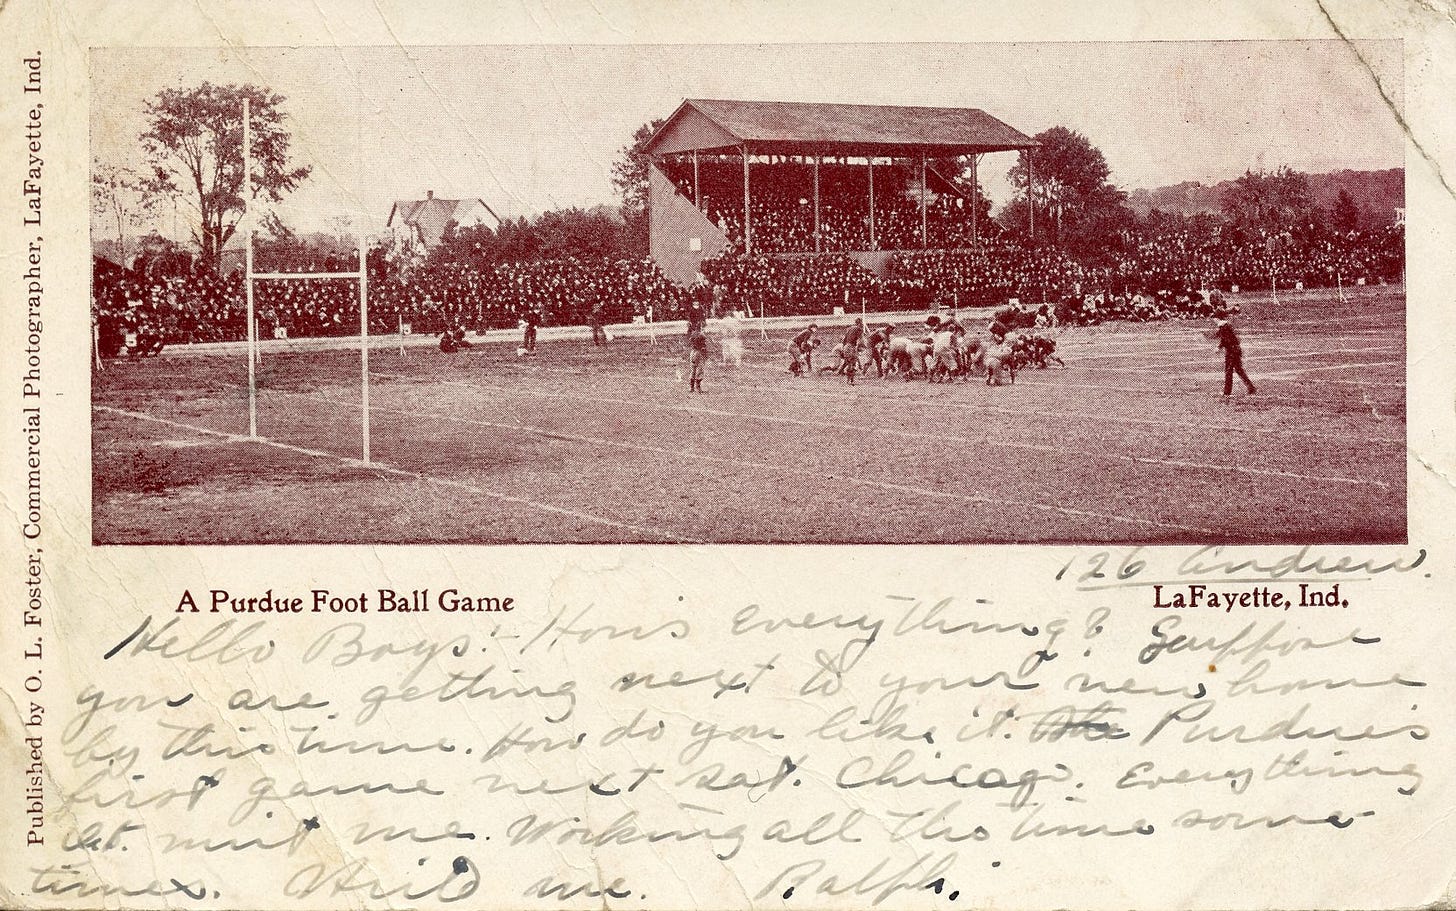 Published by O. L. Foster, Commercial Photographer, LaFayette, Ind.
126 Andrew.
A Purdue Foot Ball Game
LaFayette, Ind.
Hello Boys! - How's Everything? Suppose
you are getting next to your new home
by this time. How do you like it. Purdue's
first game next sat. Chicago. Everything
me. Working all the time some
times. Write me. Ralph.